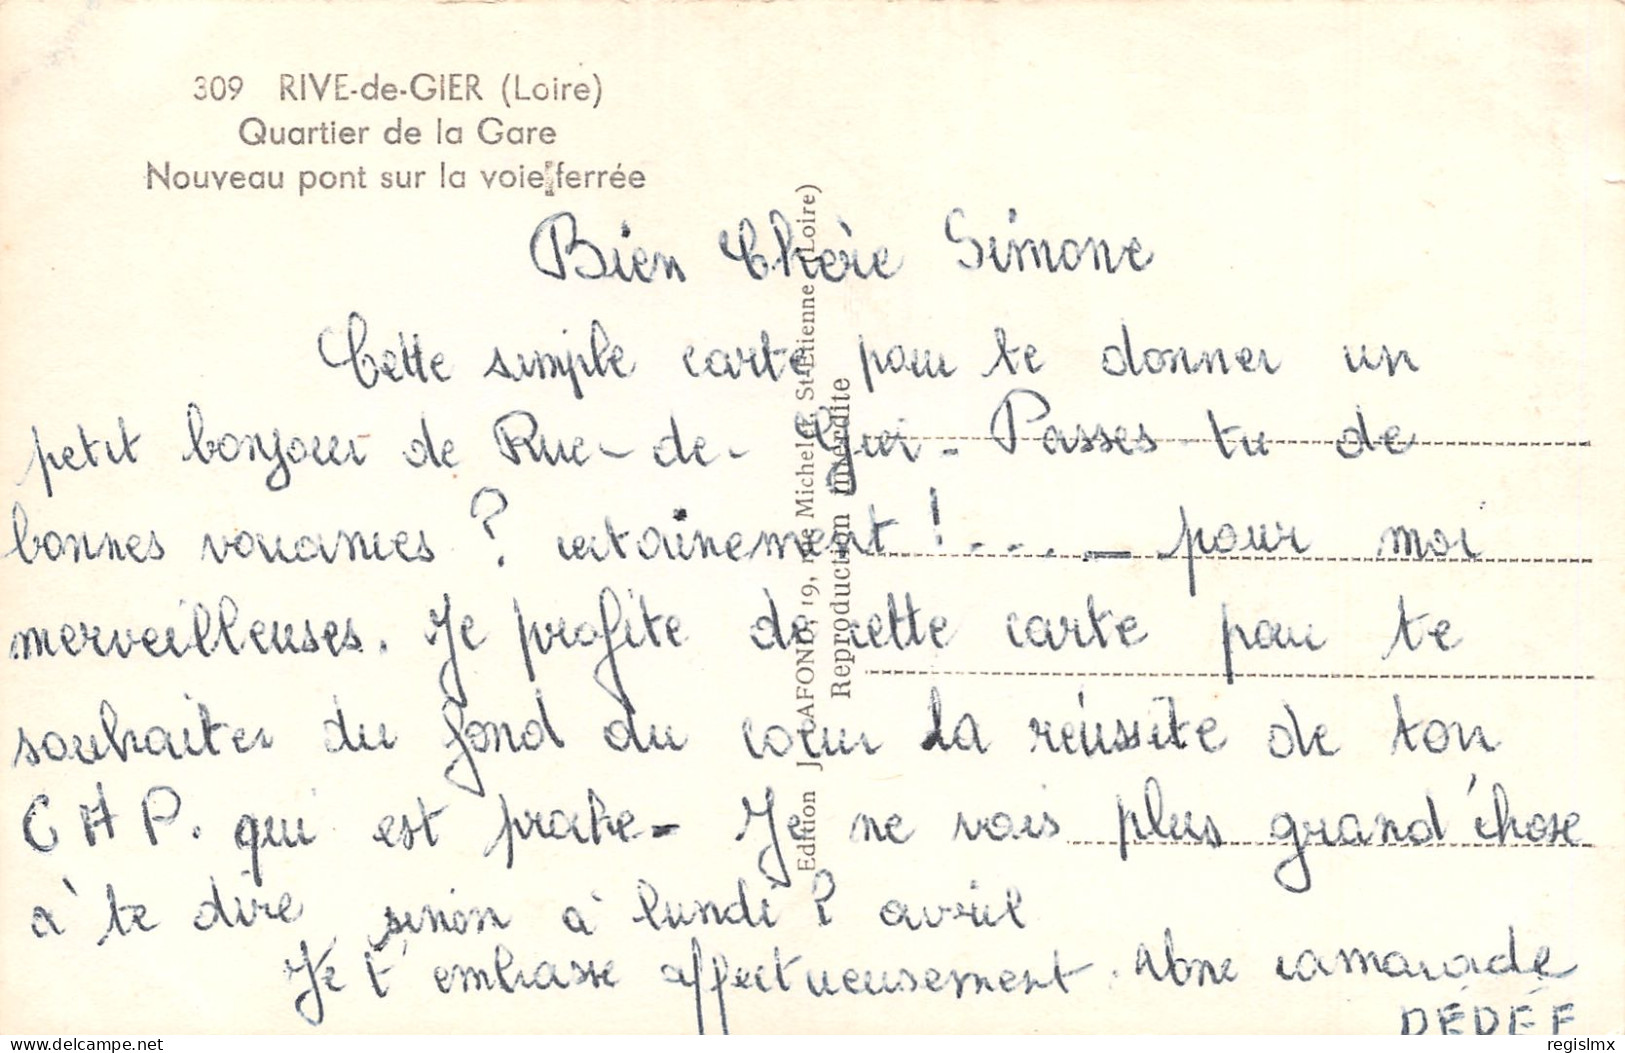 309 RIVE-de-GIER (Loire)
Quartier de la Gare
Nouveau pont sur la voie ferrée
Bien Chère Simone
Cette simple carte pour te donner un
petit bonjour de Rive-de-Gier - Passes-tu de
bonnes vacances ? certainement !.... — pour moi
merveilleuses. Je profite de cette carte pour te
souhaiter du fond du coeur la réussite de ton
C A P. qui est proche - Je ne vois plus grand'chose
à te dire sinon à lundi 2 avril
Je t'embrasse affectueusement. Une camarade
DÉDÉE
Edition J. LAFOND, 19, rue Michelet, St-Etienne (Loire)
Reproduction interdite
delcampe.net
regislmx